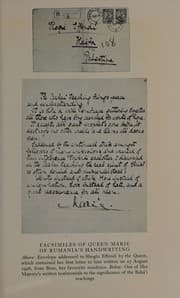 Shoghi Effendi
Haifa
Palestine
The Bahai teaching brings peace
and understanding.
It is like a wide embrace gathering together
all those who have long searched for words of hope.
It accepts all great prophets gone before, it
destroys no other creeds and leaves all doors
open.
Saddened by the continual strife amongst
believers of many confessions and wearied of
their intolerance towards each other, I discovered
in the Bahai teaching the real spirit of Christ
so often denied and misunderstood:
Unity instead of strife, hope instead of
condemnation, love instead of hate, and a
great reassurance for all men.
Marie
FACSIMILES OF QUEEN MARIE
OF RUMANIA'S HANDWRITING
Above: Envelope addressed to Shoghi Effendi by the Queen,
which contained her first letter to him written on 27 August
1926, from Bran, her favorite residence. Below: One of Her
Majesty's written testimonials to the significance of the Baha'i
teachings